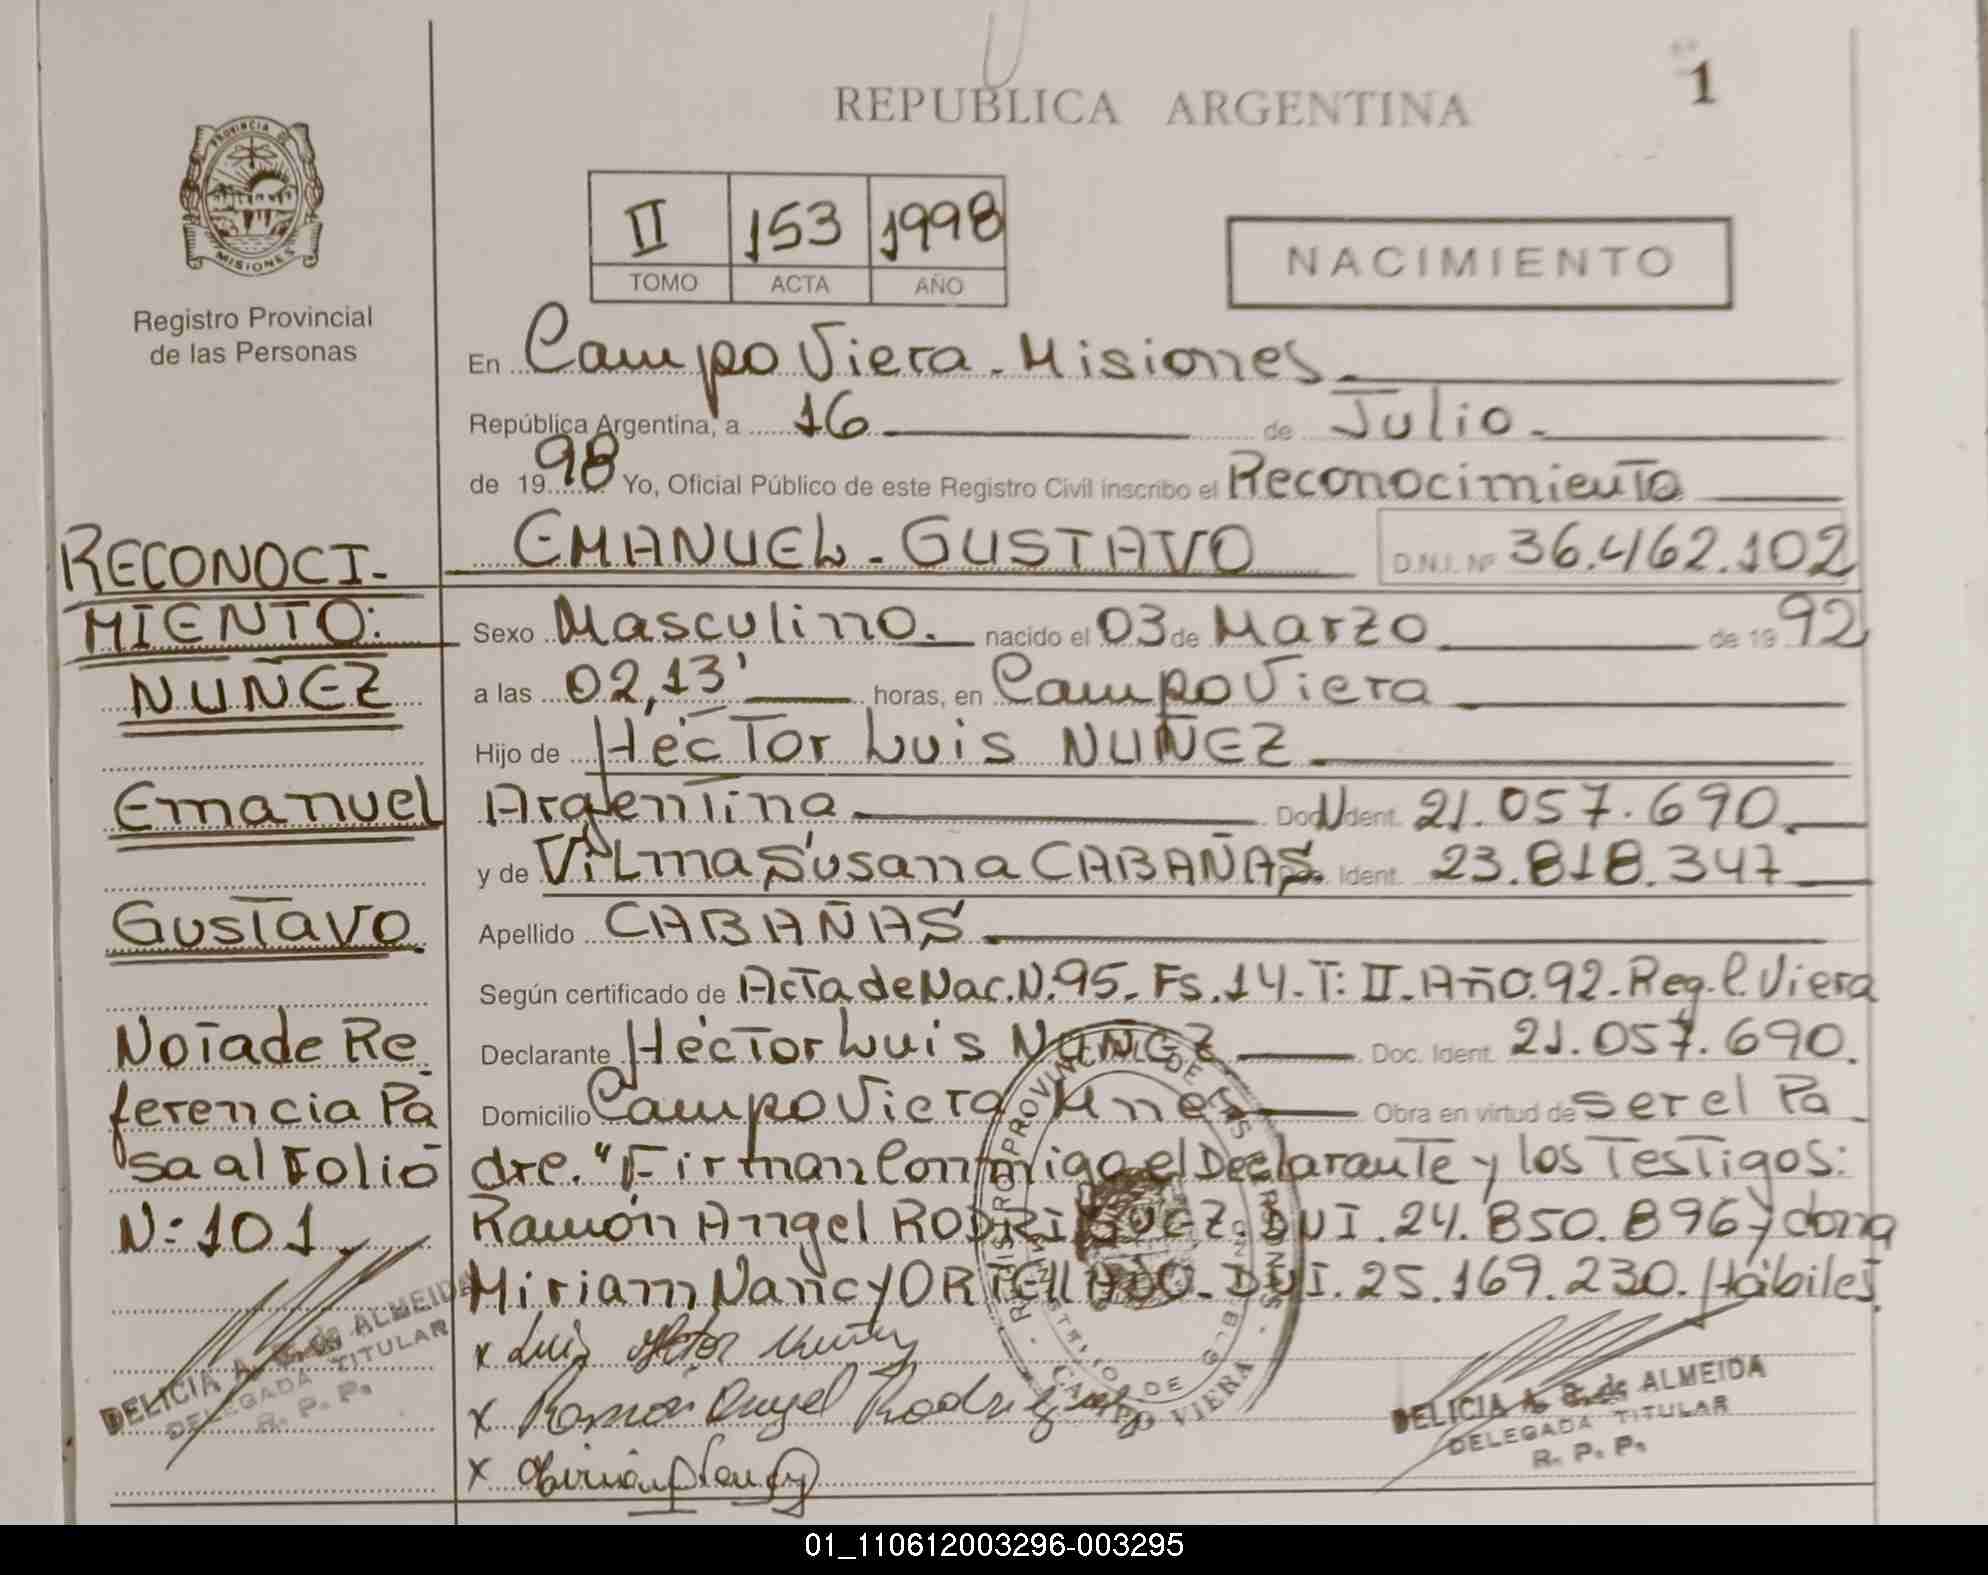 REPUBLICA ARGENTINA
1
PROVINCIA DE
MISIONES
Registro Provincial
de las Personas
II 153 1998
TOMO ACTA AÑO
NACIMIENTO
En Campo Viera - Misiones.
República Argentina, a 16 de Julio.
de 1998 Yo, Oficial Público de este Registro Civil inscribo el Reconocimiento
EMANUEL - GUSTAVO D.N.I. Nº 36.462.102
Sexo Masculino. nacido el 03 de Marzo de 1992
a las 02,13' horas, en Campo Viera
Hijo de Héctor Luis NUÑEZ
Argentina Doc. Ident. 21.057.690.
y de Vilma Susana CABAÑAS. Ident. 23.818.347
Apellido CABAÑAS
Según certificado de Acta de Nac. N. 95. Fs. 14. T: II. Año. 92. Reg. C. Viera
Declarante Héctor Luis NUÑEZ Doc. Ident. 21.057.690.
Domicilio Campo Viera Mnes Obra en virtud de ser el Pa
dre. "Firman Conmigo el Declarante y los Testigos:
Ramón Angel RODRIGUEZ. DNI. 24.850.896 y dona
Miriam Nancy DNI. 25.169.230. Hábiles.
x Luis Hector Nuñez
x Ramón Angel Rodriguez
x Nancy
RECONOCI-
MIENTO:
NUÑEZ
Emanuel
Gustavo
Nota de Re
ferencia Pa
sa al Folio
N: 101.
DELICIA A. G. de ALMEIDA
DELEGADA TITULAR
R. P. P.
DELICIA A. G. de ALMEIDA
DELEGADA TITULAR
R. P. P.
REGISTRO PROVINCIAL DE LAS PERSONAS
CAMPO VIERA
01_110612003296-003295